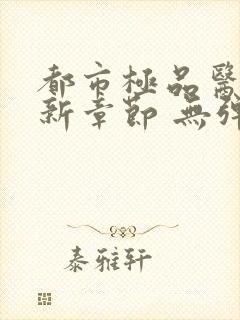 都市極品醫
新章節 無彈
泰雅轩